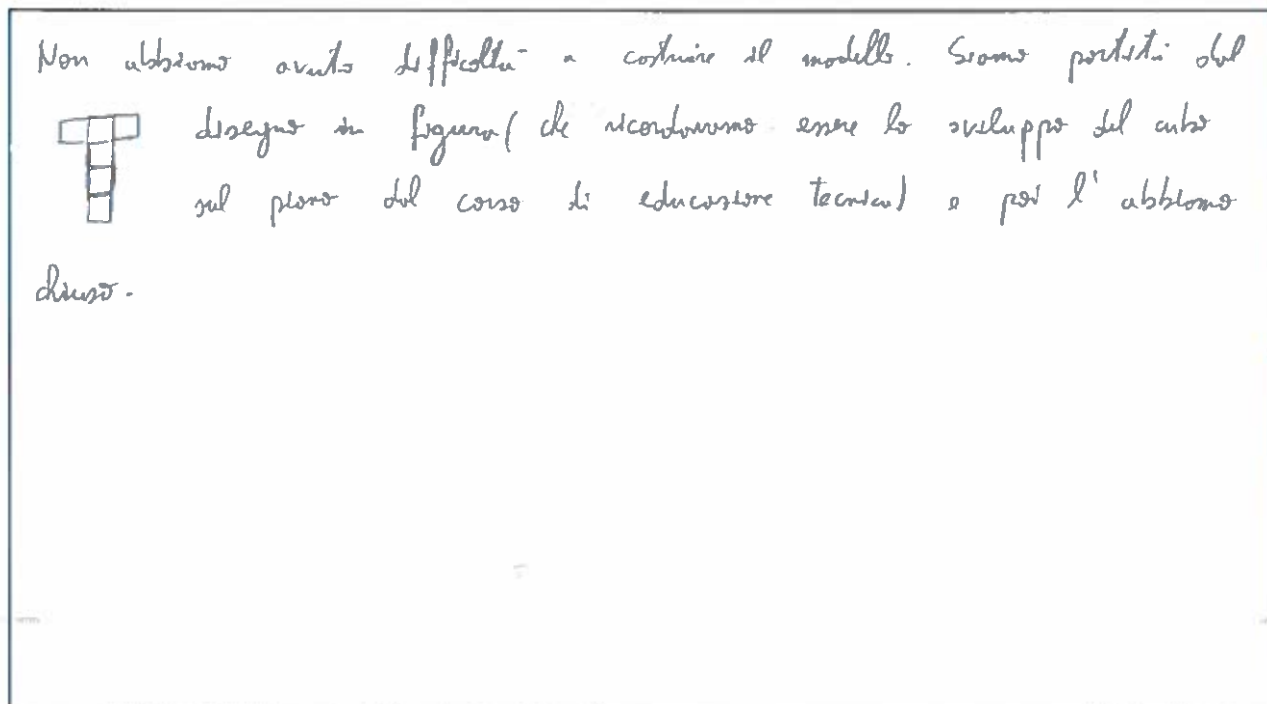 Non abbiamo avuto difficoltà a costruire il modello. Siamo partiti dal
disegno in figura (che ricordavamo essere lo sviluppo del cubo
sul piano dal corso di educazione tecnica) e poi l'abbiamo
chiuso.